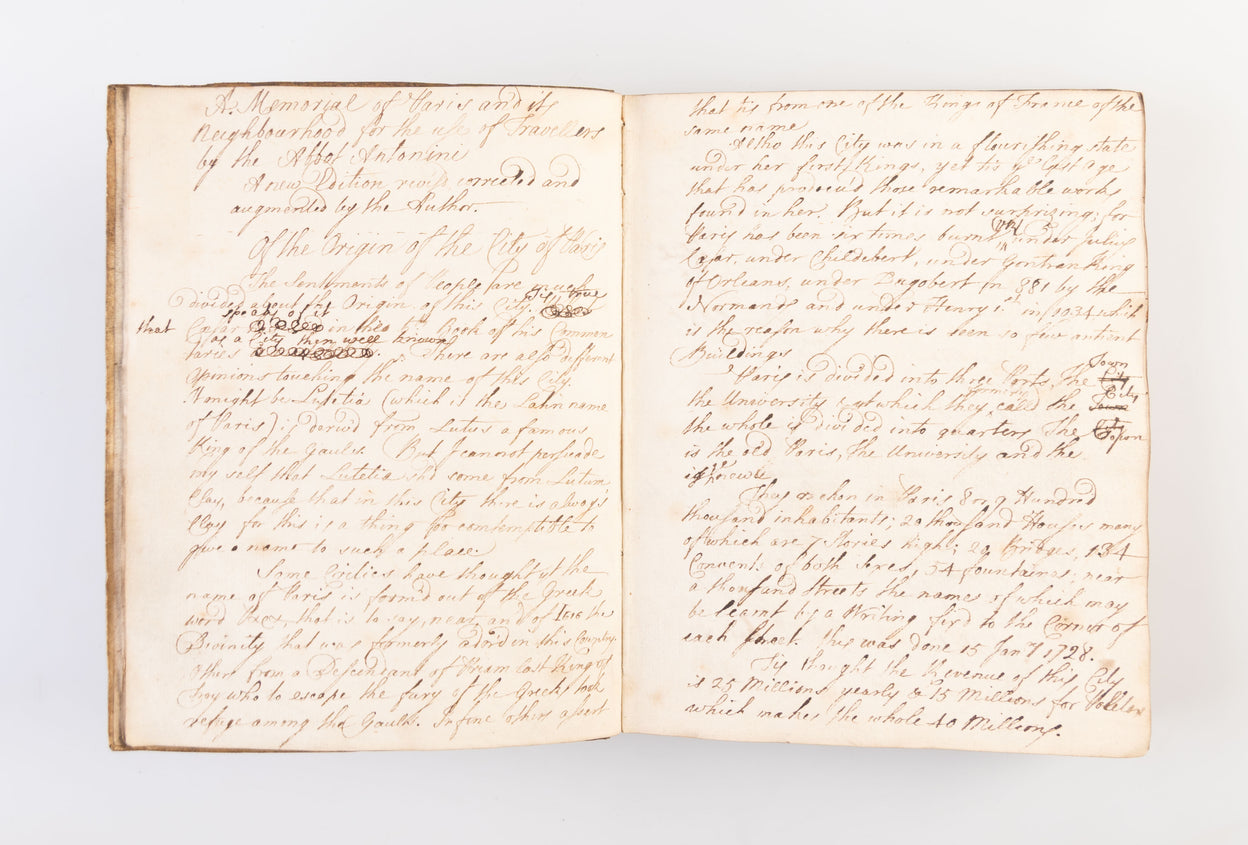 A Memorial of Paris and its
Neighbourhood for the use of Travellers
by the Abbot Antonini
A new Edition revis'd corrected and
augmented by the Author.
Of the Origin of the City of Paris
The Sentiments of People are much
divided about the Origin of this City. Tis true
that Cæsar speaks of it in the 6 Book of his Commen
taries as a City then well known. There are also different
opinions touching the name of this City.
It might be Lutetia (which is the Latin name
of Paris) is deriv'd from Lutus a famous
King of the Gauls. But I cannot persuade
my self that Lutetia shd come from Lutum
Clay, because that in this City there is always
Clay for this is a thing too contemptible to
give a name to such a place.
Some Criticks have thought yt the
name of Paris is form'd out of the Greek
word that is to say, near, and of Isis the
Divinity that was formerly ador'd in this Country.
Others from a Descendant of Priam last King of
Troy who to escape the fury of the Greeks took
refuge among the Gauls. In fine others assert
that tis from one of the Kings of France of the
same name
Altho this City was in a flourishing state
under her first Kings, yet tis ye last age
that has produc'd those remarkable works
found in her. But it is not surprizing; for
Paris has been six times burnt under Julius
Cæsar, under Childebert, under Gontran King
of Orleans, under Dagobert in 881 by the
Normands and under Henry 1st in 1034 which
is the reason why there is seen so few antient
Buildings
Paris is divided into three Parts, The Town City
the University & of which they formerly call'd the Town City
the whole is divided into quarters The City Town
is the old Paris, The University and the
is ye newe
They reckon in Paris 8 or 9 Hundred
thousand inhabitants; 20 thousand Houses many
of which are 7 Stories high; 20 Bridges, 134
Convents of both sexes, 54 fountaines; near
a thousand Streets the names of which may
be learnt by a Writing fix'd to the Corner of
each Street. this was done 15 Jany 1728.
Tis thought the Revenue of this City
is 25 Millions yearly & 15 Millions for
which makes the whole 40 Millions.